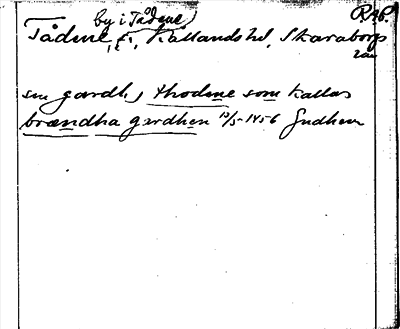 by i Tådene)
Tådene, f., Kållands hd, Skaraborgs
län
sin gardh, thodene som kallas
brændha gardhen 13/5 1456 Gudhem